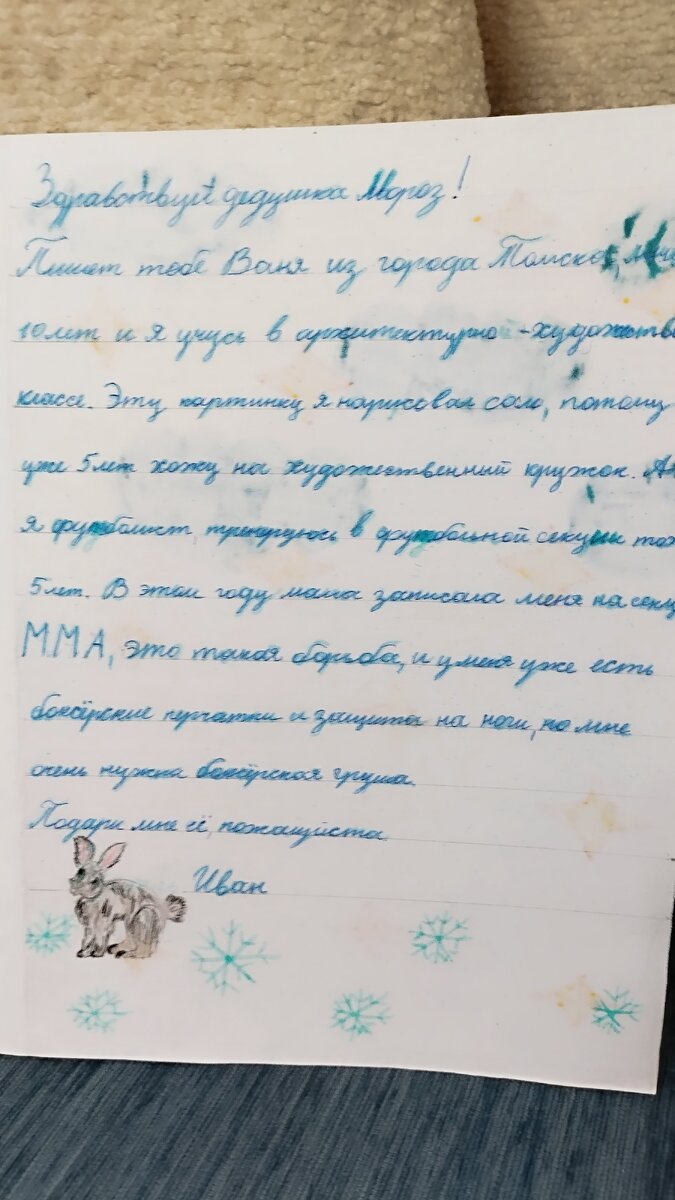 Здравствуй дедушка Мороз!
Пишет тебе Ваня из города Томска, мне
10 лет и я учусь в архитектурно-художеств
классе. Эту картинку я нарисовал сам, потому
уже 5 лет хожу на художественный кружок.
я футболист, тренируюсь в футбольной секции тож
5 лет. В этом году мама записала меня на секц
ММА, это такая борьба, и у меня уже есть
боксёрские перчатки и защита на ноги, но мне
очень нужна боксёрская груша.
Подари мне её, пожалуйста
Иван